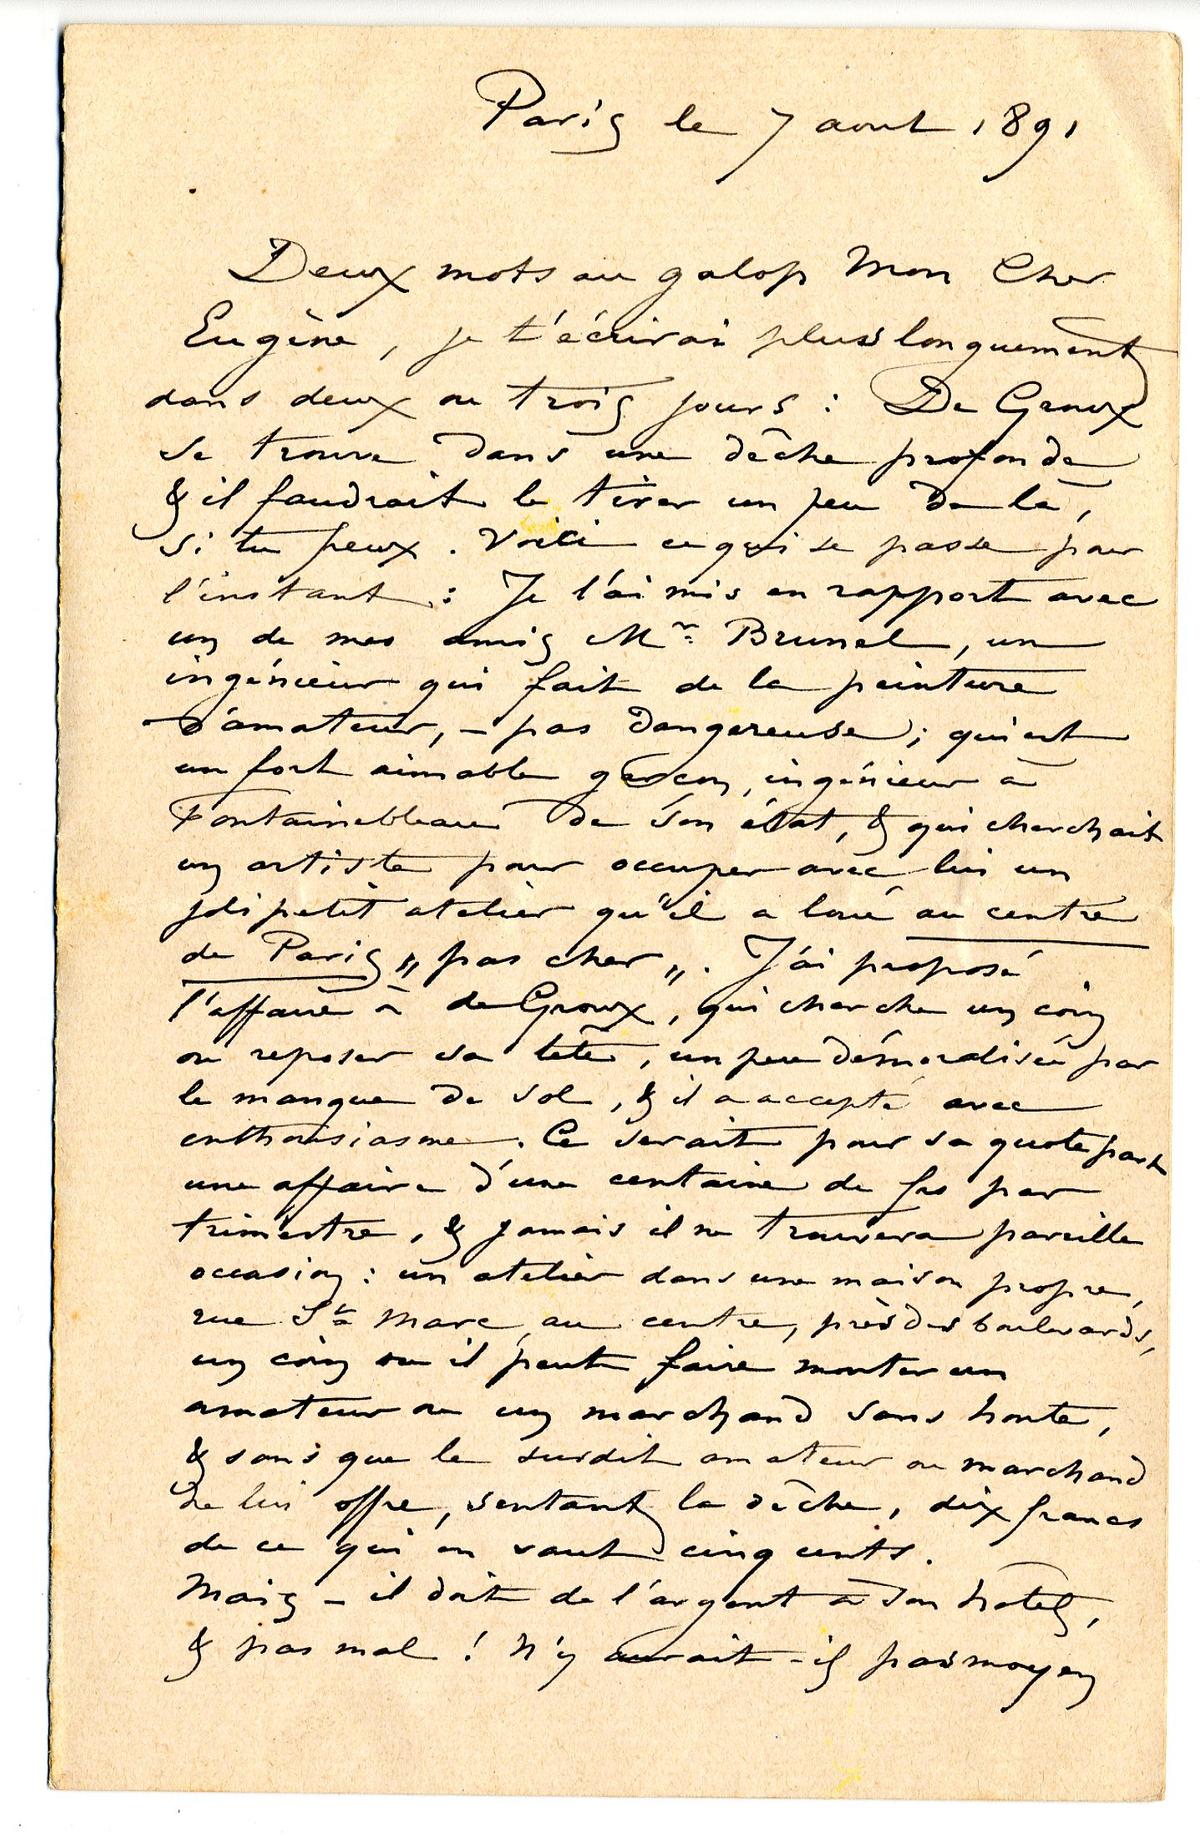 Paris le 7 aout 1891
Deux mots au galop Mon Cher
Eugène, je t'écrirai plus longuement
dans deux ou trois jours : De Groux
se trouve dans une dêche profonde
& il faudrait le tirer un peu de là,
si tu peux. Voici ce qui se passe pour
l'instant : Je l'ai mis en rapport avec
un de mes amis Mr Brunel, un
ingénieur qui fait de la peinture
d'amateur, – pas dangereuse ; qui est
un fort aimable garçon, ingénieur à
Fontainebleau de son état, & qui cherchait
un artiste pour occuper avec lui un
joli petit atelier qu'il a loué au centre
de Paris „ pas cher „. J'ai proposé
l'affaire à de Groux, qui cherche un coin
ou reposer sa tête, un peu démoralisé par
le manque de sol, & il a accepté avec
enthousiasme. Ce serait pour sa quote part
une affaire d'une centaine de frs par
trimestre, & jamais il ne trouvera pareille
occasion : un atelier dans une maison propre,
rue St Marc, au centre, près des boulevards,
un coin ou il peut faire monter un
amateur ou un marchand sans honte,
& sans que le susdit amateur ou marchand
ne lui offre, sentant la dêche, dix francs
de ce qui en vaut cinq cents.
Mais – il doit de l'argent à son hôtel,
& pas mal ! N'y aurait-il pas moyen